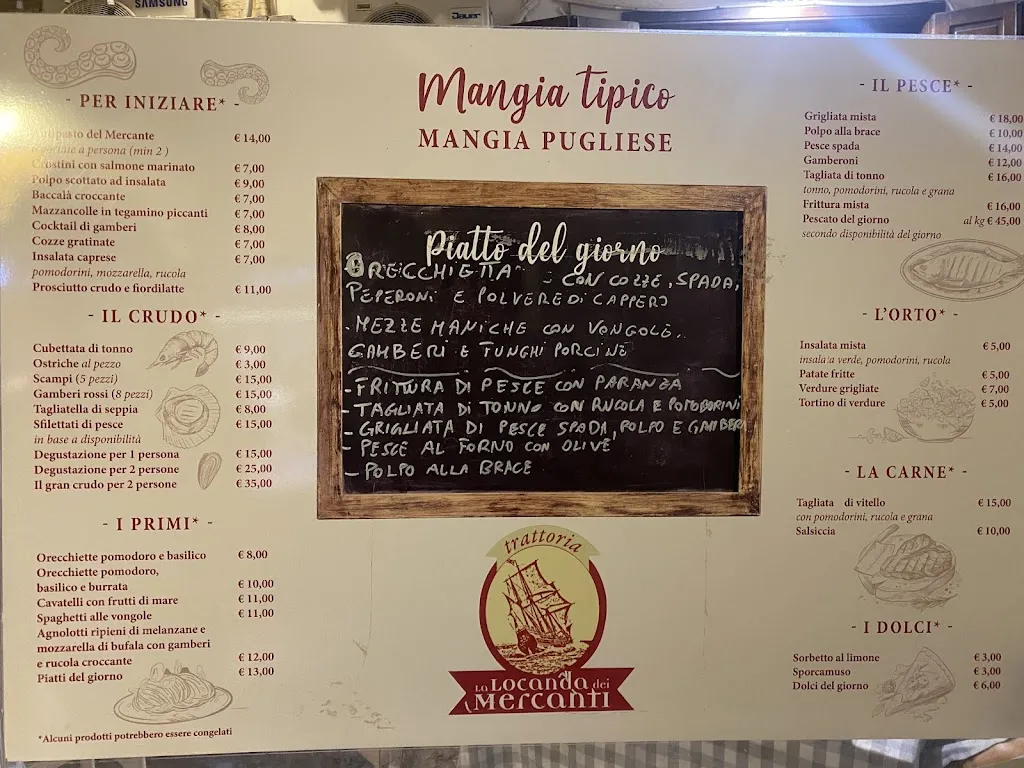 SAMSUNG
- PER INIZIARE* -
Antipasto del Mercante € 14,00
a persona (min 2 )
Crostini con salmone marinato € 7,00
Polpo scottato ad insalata € 9,00
Baccalà croccante € 7,00
Mazzancolle in tegamino piccanti € 7,00
Cocktail di gamberi € 8,00
Cozze gratinate € 7,00
Insalata caprese € 7,00
pomodorini, mozzarella, rucola
Prosciutto crudo e fiordilatte € 11,00
- IL CRUDO* -
Cubettata di tonno € 9,00
Ostriche al pezzo € 3,00
Scampi (5 pezzi) € 15,00
Gamberi rossi (8 pezzi) € 15,00
Tagliatella di seppia € 8,00
Sfilettati di pesce € 15,00
in base a disponibilità
Degustazione per 1 persona € 15,00
Degustazione per 2 persone € 25,00
Il gran crudo per 2 persone € 35,00
- I PRIMI* -
Orecchiette pomodoro e basilico € 8,00
Orecchiette pomodoro,
basilico e burrata € 10,00
Cavatelli con frutti di mare € 11,00
Spaghetti alle vongole € 11,00
Agnolotti ripieni di melanzane e
mozzarella di bufala con gamberi
e rucola croccante € 12,00
Piatti del giorno € 13,00
*Alcuni prodotti potrebbero essere congelati
Mangia tipico
MANGIA PUGLIESE
Piatto del giorno
ORECCHIETTA - CON COZZE, SPADA,
PEPERONI E POLVERE DI CAPPERO
- MEZZE MANICHE CON VONGOLE,
GAMBERI E FUNGHI PORCINE
- FRITTURA DI PESCE CON PARANZA
- TAGLIATA DI TONNO CON RUCOLA E POMODORINI
- GRIGLIATA DI PESCE SPADA, POLPO E GAMBER
- PESCE AL FORNO CON OLIVE
- POLPO ALLA BRACE
trattoria
La Locanda dei
Mercanti
- IL PESCE* -
Grigliata mista € 18,00
Polpo alla brace € 10,00
Pesce spada € 14,00
Gamberoni € 12,00
Tagliata di tonno € 16,00
tonno, pomodorini, rucola e grana
Frittura mista € 16,00
Pescato del giorno al kg € 45,00
secondo disponibilità del giorno
- L'ORTO* -
Insalata mista € 5,00
insalata verde, pomodorini, rucola
Patate fritte € 5,00
Verdure grigliate € 7,00
Tortino di verdure € 5,00
- LA CARNE* -
Tagliata di vitello € 15,00
con pomodorini, rucola e grana
Salsiccia € 10,00
- I DOLCI* -
Sorbetto al limone € 3,00
Sporcamuso € 3,00
Dolci del giorno € 6,00